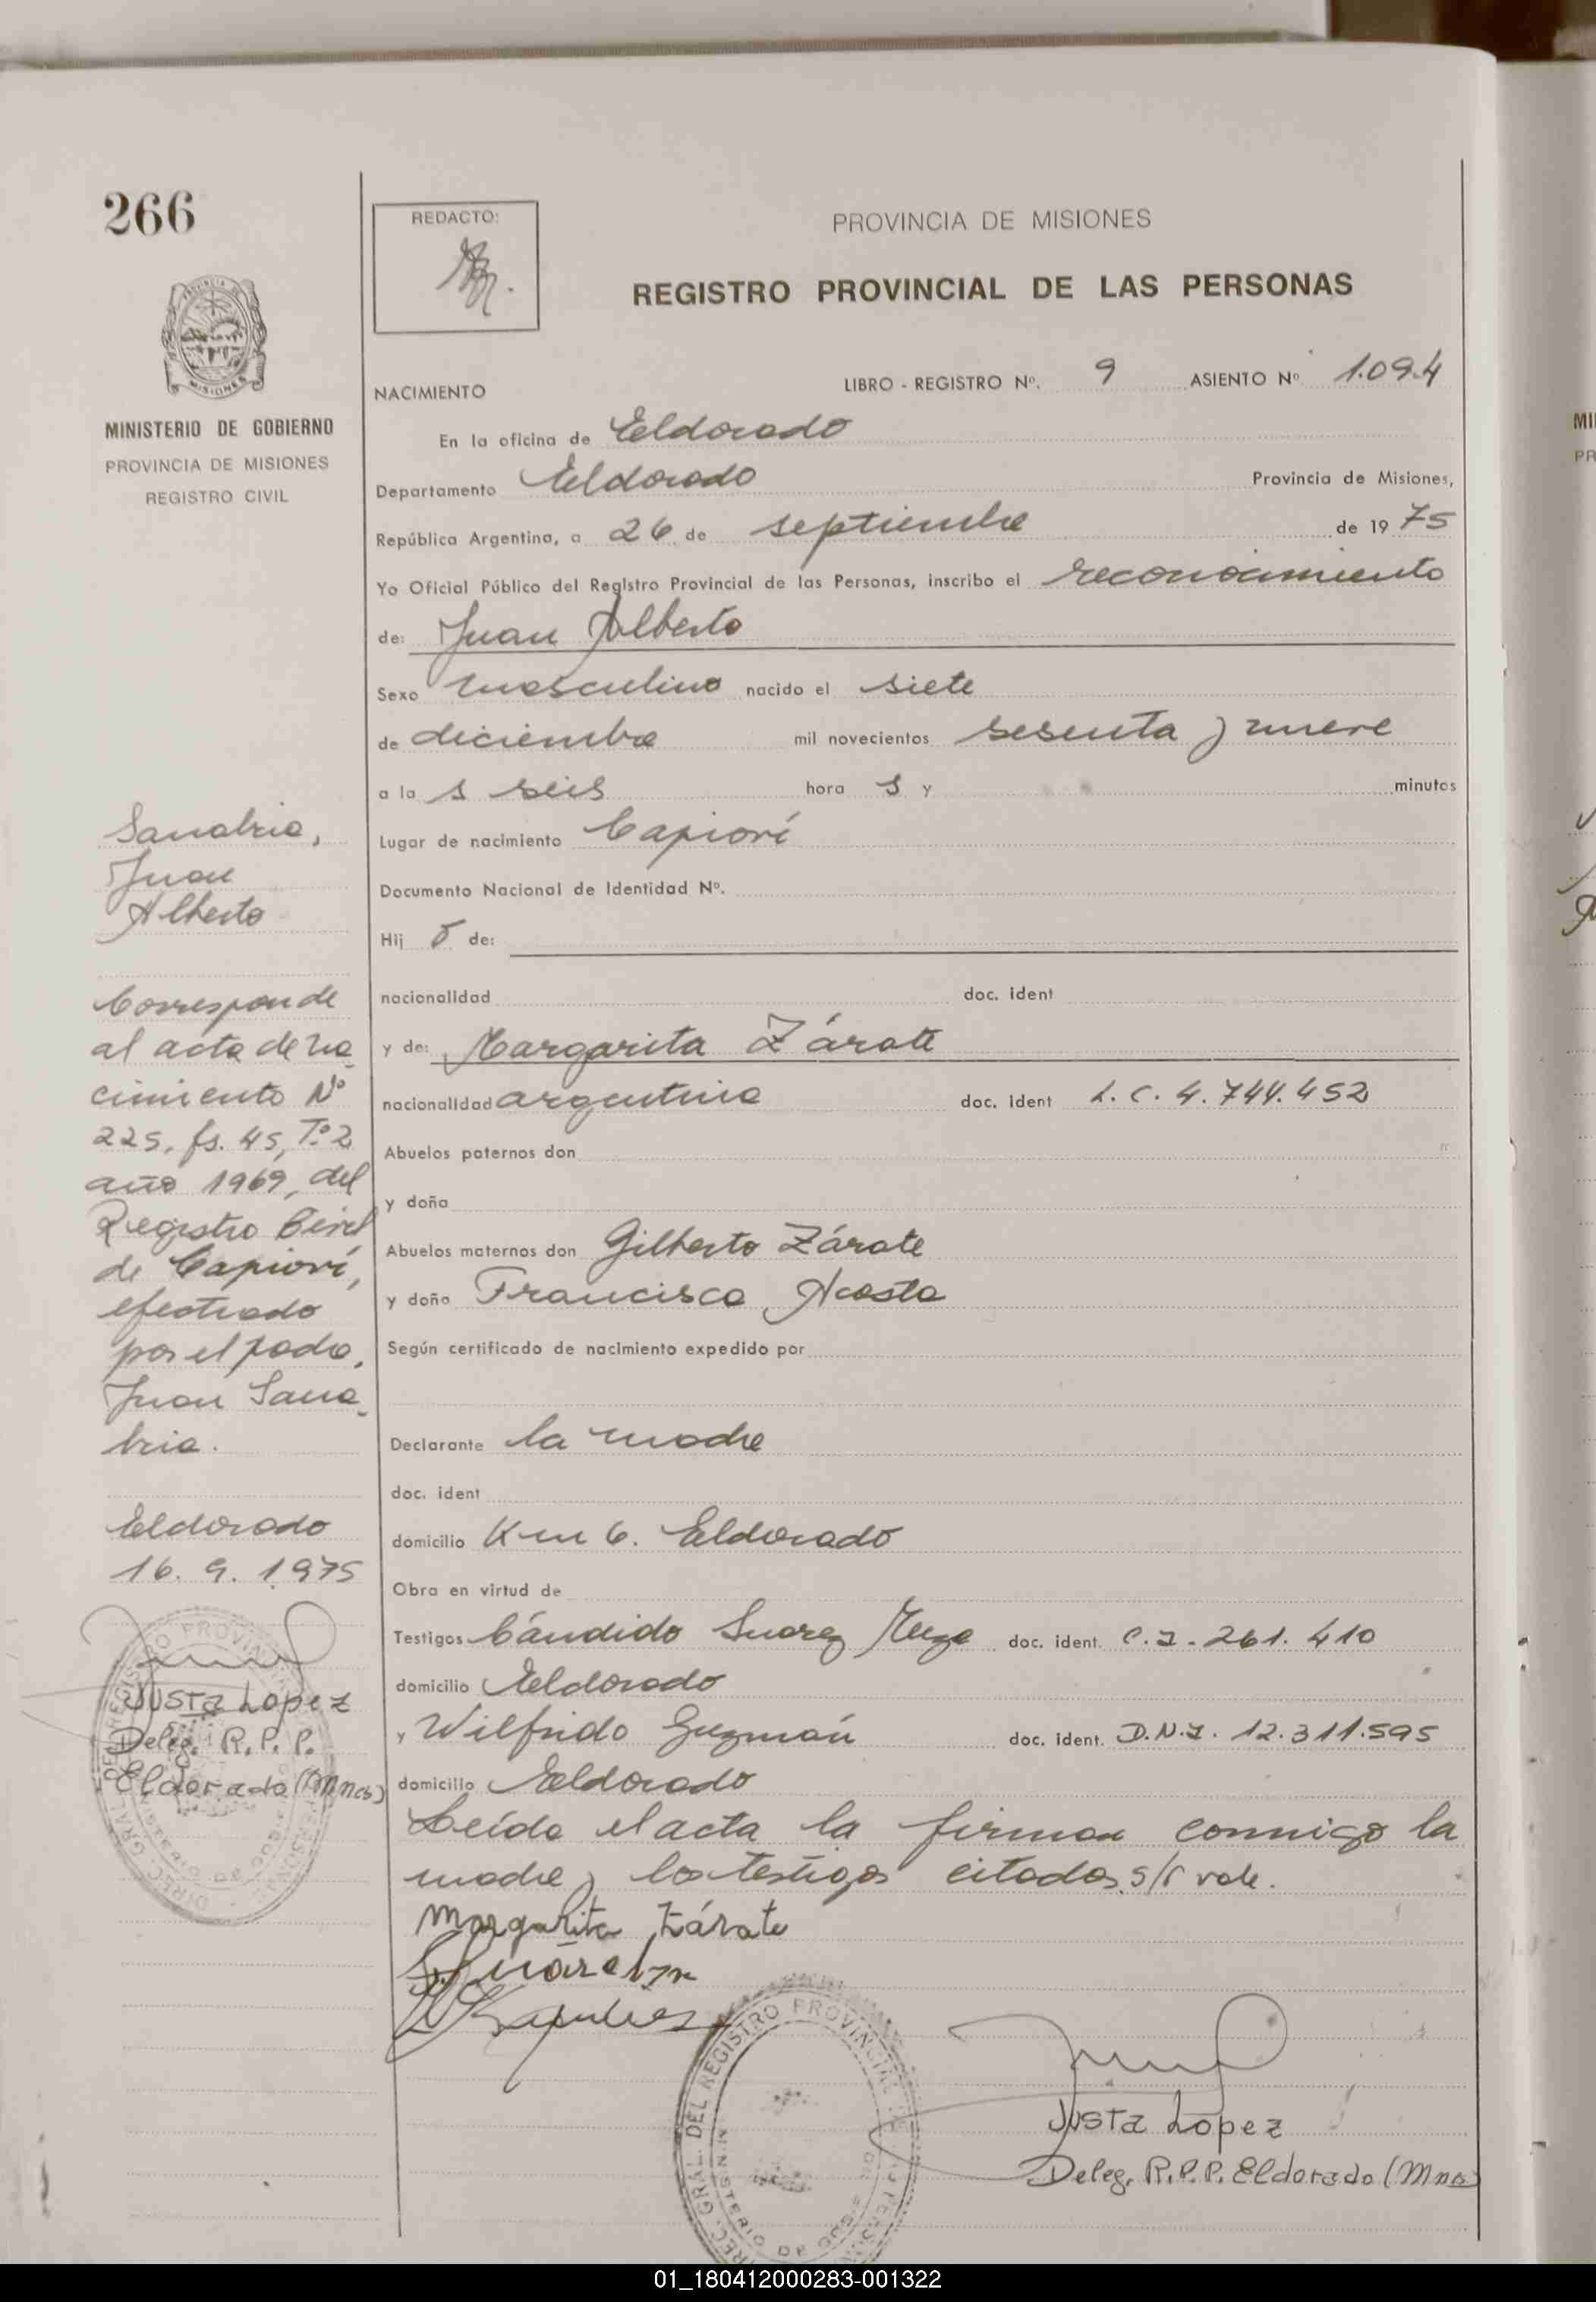 266
REDACTO:
PROVINCIA DE MISIONES
REGISTRO PROVINCIAL DE LAS PERSONAS
MISIONES
MINISTERIO DE GOBIERNO
PROVINCIA DE MISIONES
REGISTRO CIVIL
NACIMIENTO
LIBRO - REGISTRO Nº. 9 ASIENTO Nº 1.094
En la oficina de Eldorado
Departamento Eldorado Provincia de Misiones,
República Argentina, a 26 de septiembre de 1975
Yo Oficial Público del Registro Provincial de las Personas, inscribo el reconocimiento
de: Juan Alberto
Sexo masculino nacido el siete
de diciembre mil novecientos sesenta y nueve
a la s seis hora s y minutos
Lugar de nacimiento Capioví
Documento Nacional de Identidad Nº.
Hij o de:
nacionalidad doc. ident
y de: Margarita Zárate
nacionalidad argentina doc. ident L.C. 4.744.452
Abuelos paternos don
y doña
Abuelos maternos don Gilberto Zárate
y doña Francisca Acosta
Según certificado de nacimiento expedido por
Declarante la madre
doc. ident
domicilio Km 6. Eldorado
Obra en virtud de
Testigos Cándido Suarez doc. ident. C.I. 261.410
domicilio Eldorado
y Wilfrido Guzmán doc. ident. D.N.I. 12.311.595
domicilio Eldorado
Leída el acta la firman conmigo la
madre y los testigos citados s/r vale.
Margarita Zárate
Justa Lopez
Deleg. R.P.P. Eldorado (Mnes)
Sanabria,
Juan
Alberto
Corresponde
al acta de na
cimiento Nº
225, fs. 45, Tº 2
año 1969, del
Registro Civil
de Capioví,
efectuado
por el padre,
Juan Sana-
bria.
Eldorado
16. 9. 1975
Justa Lopez
Deleg. R.P.P.
Eldorado (Mnes)
01_180412000283-001322